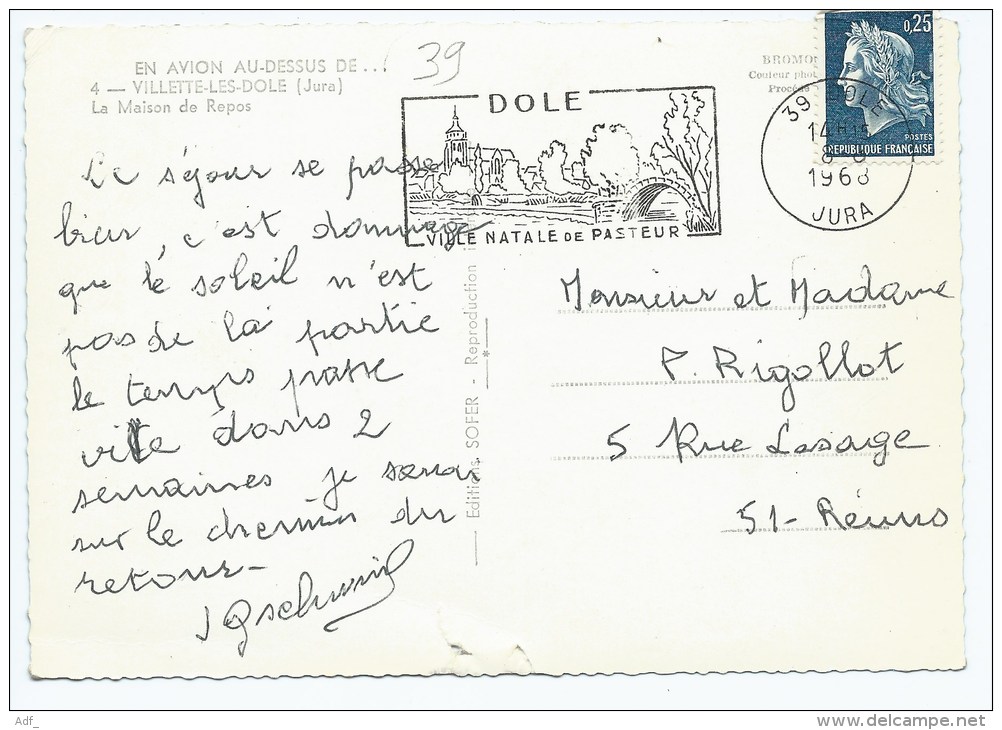 EN AVION AU-DESSUS DE...
4 — VILLETTE-LES-DOLE (Jura)
La Maison de Repos
39
BROMO
Couleur phot
Procédé
DOLE
VILLE NATALE DE PASTEUR
0,25
POSTES
REPUBLIQUE FRANÇAISE
39 DOLE
14H15
8
1968
JURA
Le séjour se passe
bien, c'est dommage
que le soleil n'est
pas de la partie
le temps passe
vite dans 2
semaines je serai
sur le chemin du
retour-
Editions SOFER - Reproduction i
Monsieur et Madame
P. Rigollot
5 Rue Lesage
51- Reims
Adf_
www.delcampe.net